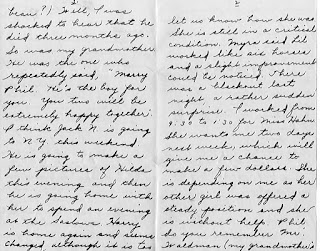 beau?) Well, I was
shocked to hear that he
died three months ago.
So was my grandmother.
He was the one who
repeatedly said, "Marry
Phil. He's the boy for
you. You two will be
extremely happy together."
I think Jack N. is going
to N.Y. this weekend.
He is going to make a
few pictures of Hilda
this evening and then
he is going home with
her to spend an evening
at the
is home again and seems
changed although it is too
2
let us know how she was.
She is still in a critical
condition. Myra said it
worked like six horses
and a slight improvement
could be noticed. There
was a blackout last
night a rather sudden
surprise. I worked from
9:30 to 1:30 for Miss Hahn
She wants me two days
next week, which will
give me a chance to
make a few dollars. She
is depending on me as her
other girl was offered a
steady position and she
is without help. Phil,
do you remember Mr.
Toaldman (my grandmother's